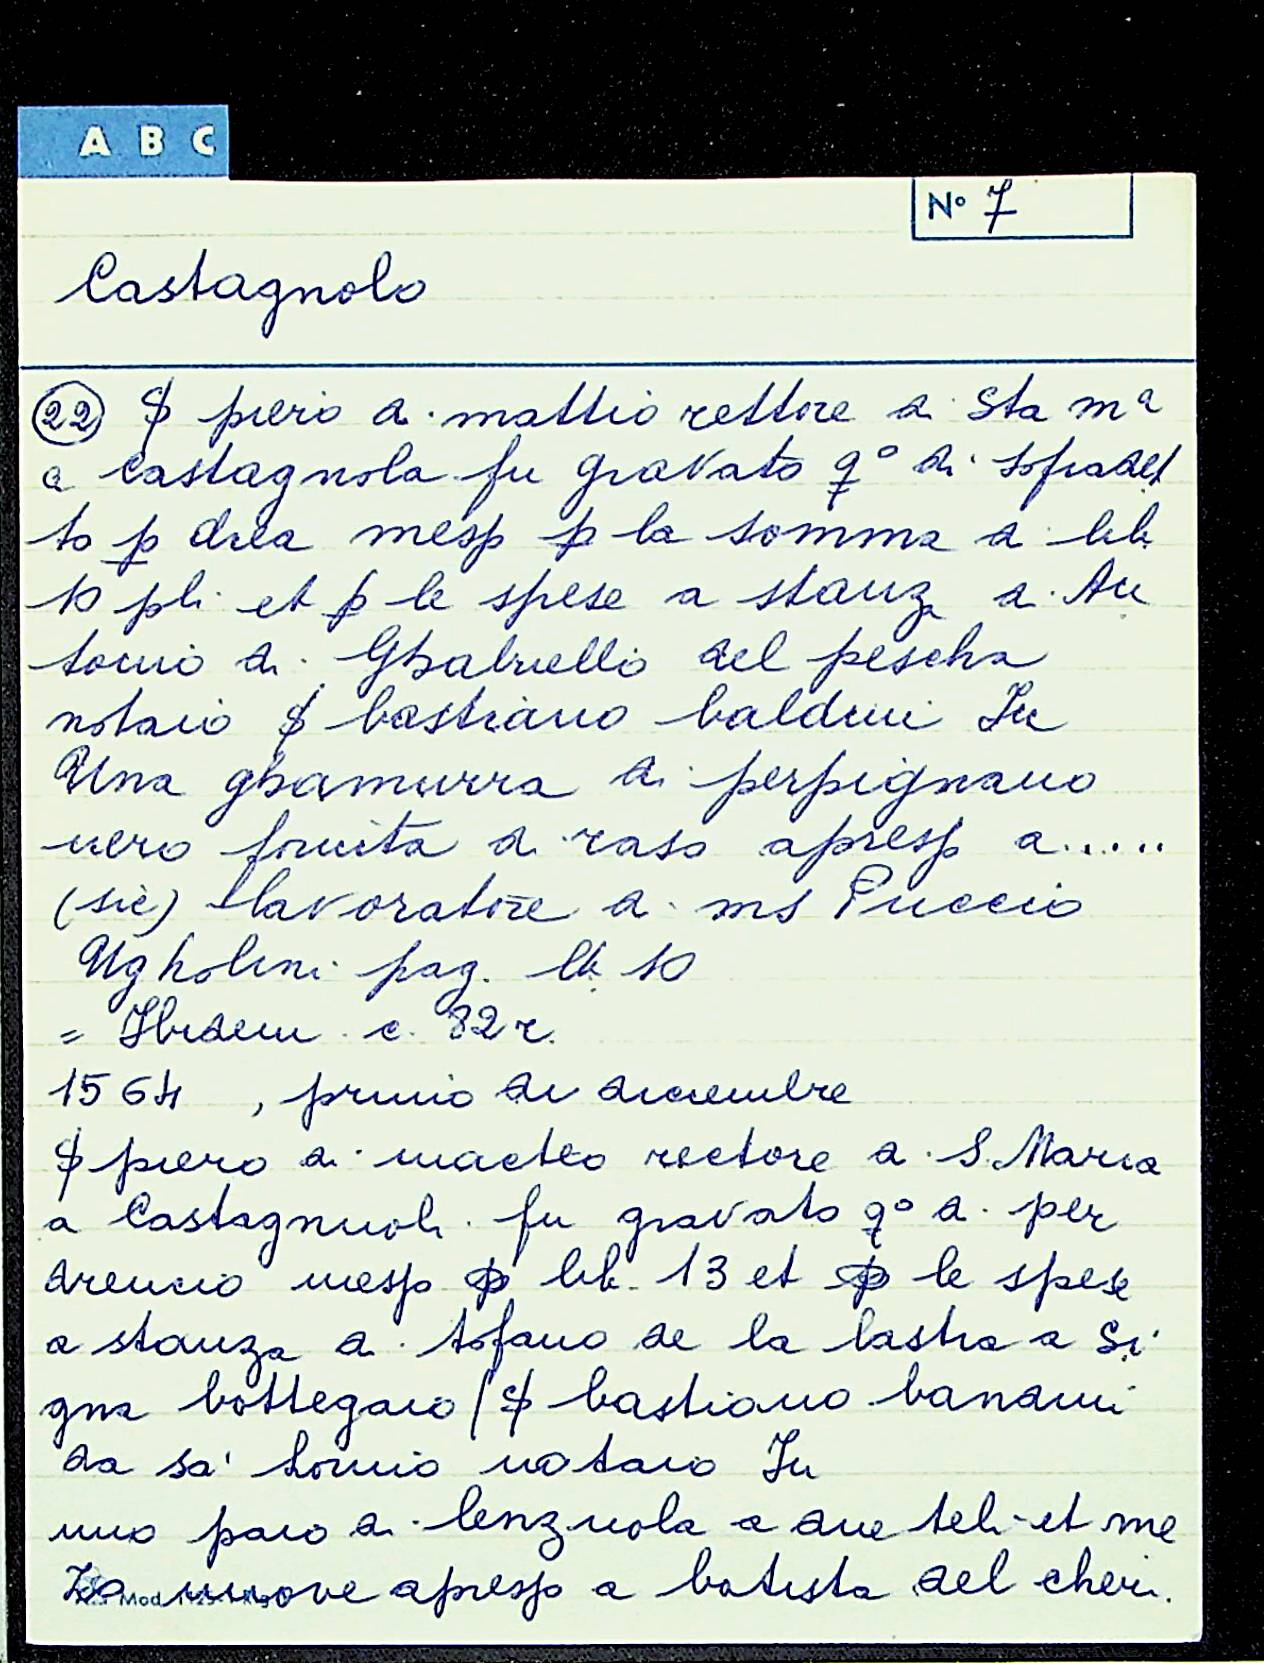 A B C
N° 7
Castagnolo
22 $ piero di mattio rettore di Sta mª
a castagnola fu gravato q° di sopradet
to p drea mesp p la somma di lib.
10 pli et p le spese a stanza di An
tonio di Ghabriello del pescha
notaio $ bastiano baldini In
Una ghamurra di perpignano
nero fornita di raso apresp a.....
(sic) lavoratore di ms Puccio
Ugholini pag. lb. 10
= Ibidem c. 82 r.
1564 , primo di dicembre
$ piero di macteo rectore di S. Maria
a Castagnuoli fu gravato q° di per
drencio mesp p lib. 13 et p le spese
a stanza di tofano de la lastra a Si
gna bottegaio / $ bastiano bandini
da sa' tomio notaio In
uno paio di lenzuola a due teli et me
za nuove apresp a batista del cheri.